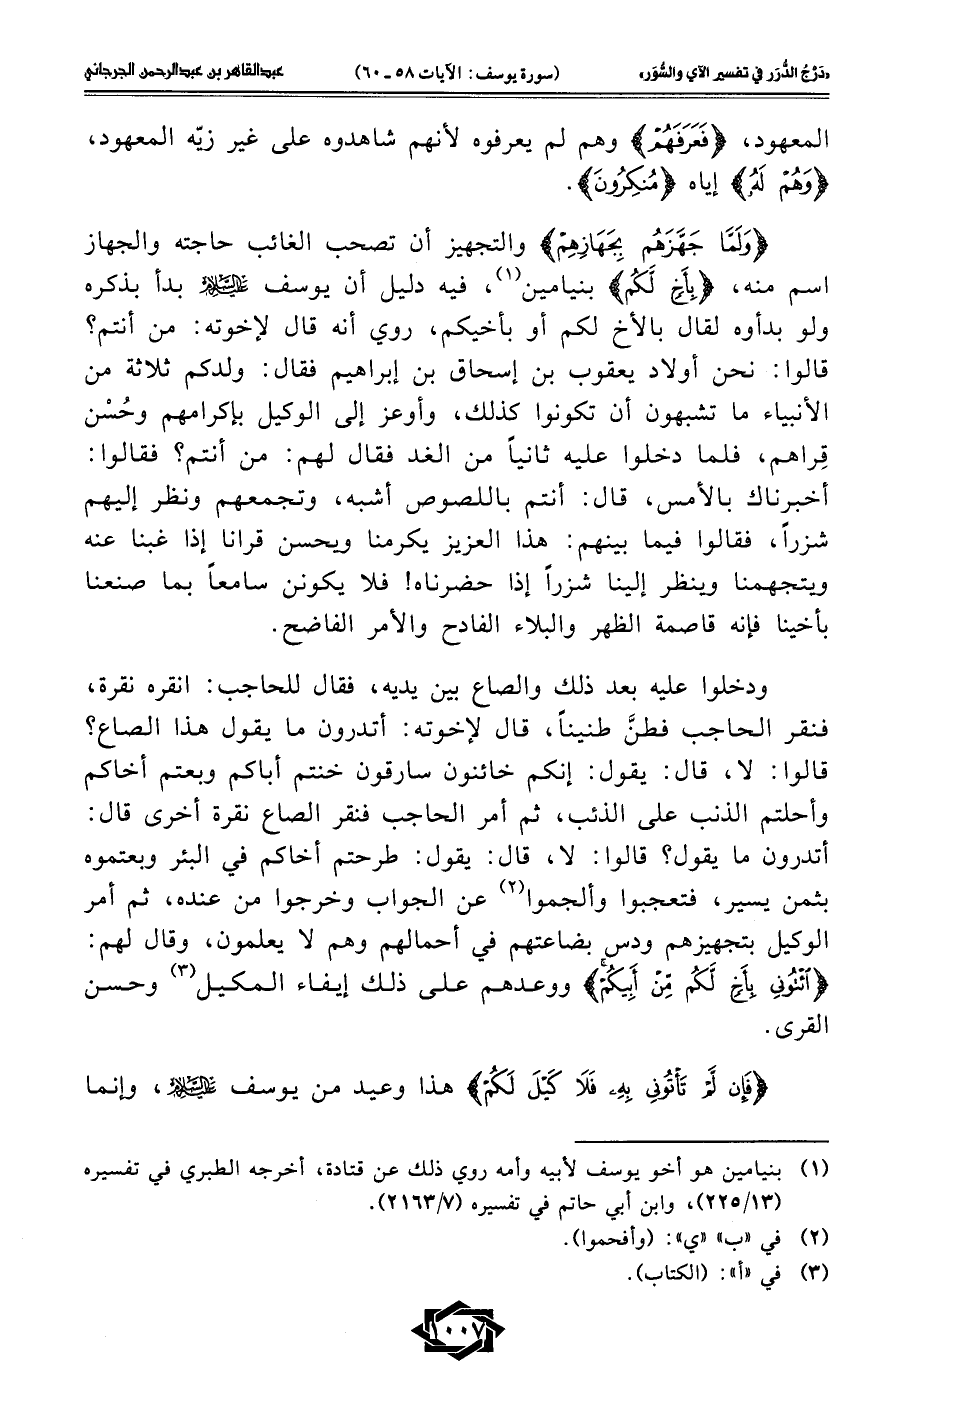 «دَرْجُ الدُّرَر في تفسير الآي والسُّوَر» (سورة يوسف: الآيات ٥٨ ـ ٦٠) عبدالقاهر بن عبدالرحمن الجرجاني
المعهود، ﴿فَعَرَفَهُمْ﴾ وهم لم يعرفوه لأنهم شاهدوه على غير زيّه المعهود،
﴿وَهُمْ لَهُ﴾ إياه ﴿مُنكِرُونَ﴾.
﴿وَلَمَّا جَهَّزَهُم بِجَهَازِهِمْ﴾ والتجهيز أن تصحب الغائب حاجته والجهاز
اسم منه، ﴿بِأَخٍ لَّكُم﴾ بنيامين(١)، فيه دليل أن يوسف عليه السلام بدأ بذكره
ولو بدأوه لقال بالأخ لكم أو بأخيكم، روي أنه قال لإخوته: من أنتم؟
قالوا: نحن أولاد يعقوب بن إسحاق بن إبراهيم فقال: ولدكم ثلاثة من
الأنبياء ما تشبهون أن تكونوا كذلك، وأوعز إلى الوكيل بإكرامهم وحُسْن
قِراهم، فلما دخلوا عليه ثانياً من الغد فقال لهم: من أنتم؟ فقالوا:
أخبرناك بالأمس، قال: أنتم باللصوص أشبه، وتجمعهم ونظر إليهم
شزراً، فقالوا فيما بينهم: هذا العزيز يكرمنا ويحسن قرانا إذا غبنا عنه
ويتجهمنا وينظر إلينا شزراً إذا حضرناه! فلا يكونن سامعاً بما صنعنا
بأخينا فإنه قاصمة الظهر والبلاء الفادح والأمر الفاضح.
ودخلوا عليه بعد ذلك والصاع بين يديه، فقال للحاجب: انقره نقرة،
فنقر الحاجب فطنَّ طنيناً، قال لإخوته: أتدرون ما يقول هذا الصاع؟
قالوا: لا، قال: يقول: إنكم خائنون سارقون خنتم أباكم وبعتم أخاكم
وأحلتم الذنب على الذئب، ثم أمر الحاجب فنقر الصاع نقرة أخرى قال:
أتدرون ما يقول؟ قالوا: لا، قال: يقول: طرحتم أخاكم في البئر وبعتموه
بثمن يسير، فتعجبوا وألجموا(٢) عن الجواب وخرجوا من عنده، ثم أمر
الوكيل بتجهيزهم ودس بضاعتهم في أحمالهم وهم لا يعلمون، وقال لهم:
﴿ائْتُونِي بِأَخٍ لَّكُم مِّنْ أَبِيكُمْ﴾ ووعدهم على ذلك إيفاء المكيل(٣) وحسن
القرى.
﴿فَإِن لَّمْ تَأْتُونِي بِهِ فَلَا كَيْلَ لَكُمْ﴾ هذا وعيد من يوسف عليه السلام، وإنما
(١) بنيامين هو أخو يوسف لأبيه وأمه روي ذلك عن قتادة، أخرجه الطبري في تفسيره
(١٣/٢٢٥)، وابن أبي حاتم في تفسيره (٧/٢١٦٣).
(٢) في «ب» «ي»: (وأفحموا).
(٣) في «أ»: (الكتاب).
١٠٠٧